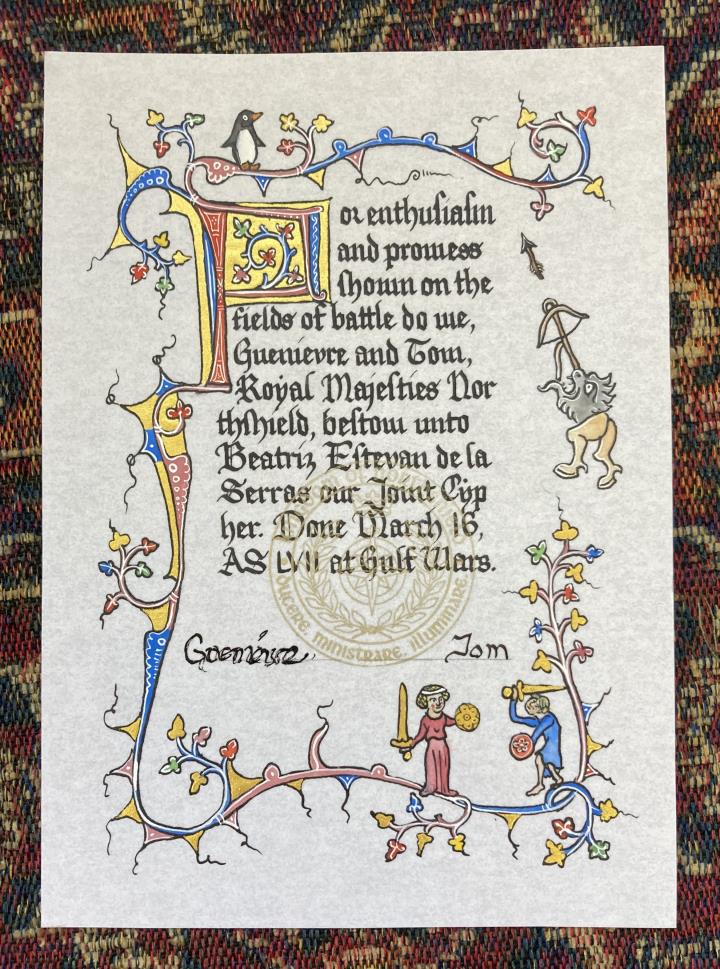 For enthusiasm
and prowess
shown on the
fields of battle do we,
Guenievre and Tom,
Royal Majesties Nor
thshield, bestow unto
Beatriz Estevan de la
Serras our Joint Cyp
her. Done March 16,
AS LVII at Gulf Wars.
DUCERE, MINISTRARE, ILLUMINARE
Guenievre Tom